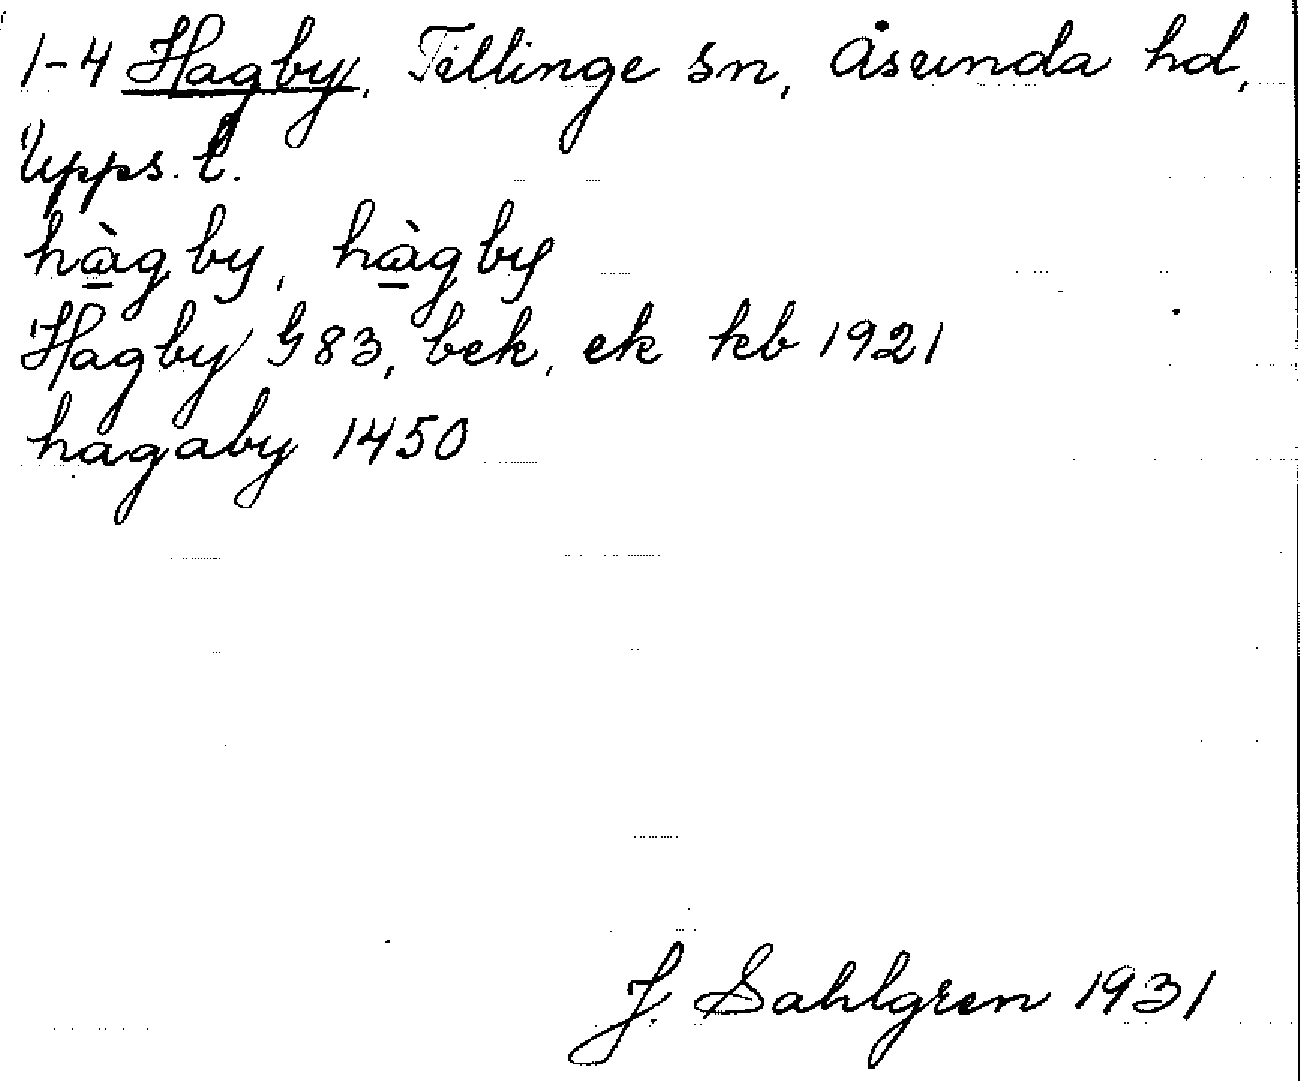 1-4 Hagby, Tillinge sn, Åsunda hd,
Upps. l.
hà̱gby, hà̱gby
Hagby G83, bek, ek kb 1921
hagaby 1450
J Sahlgren 1931